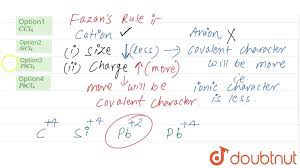 Option1
CCl4
Option2
SiCl4
Option3
PbCl2
Option4
PbCl4
Fazan's Rule :-
Cation ✓ Anion X
(i) Size ↓ (less) → covalent character will be more
(ii) Charge ↑ (more) i.e.
more will be covalent character
ionic character is less.
C+4 Si+4 Pb+2 Pb+4
doubtnut